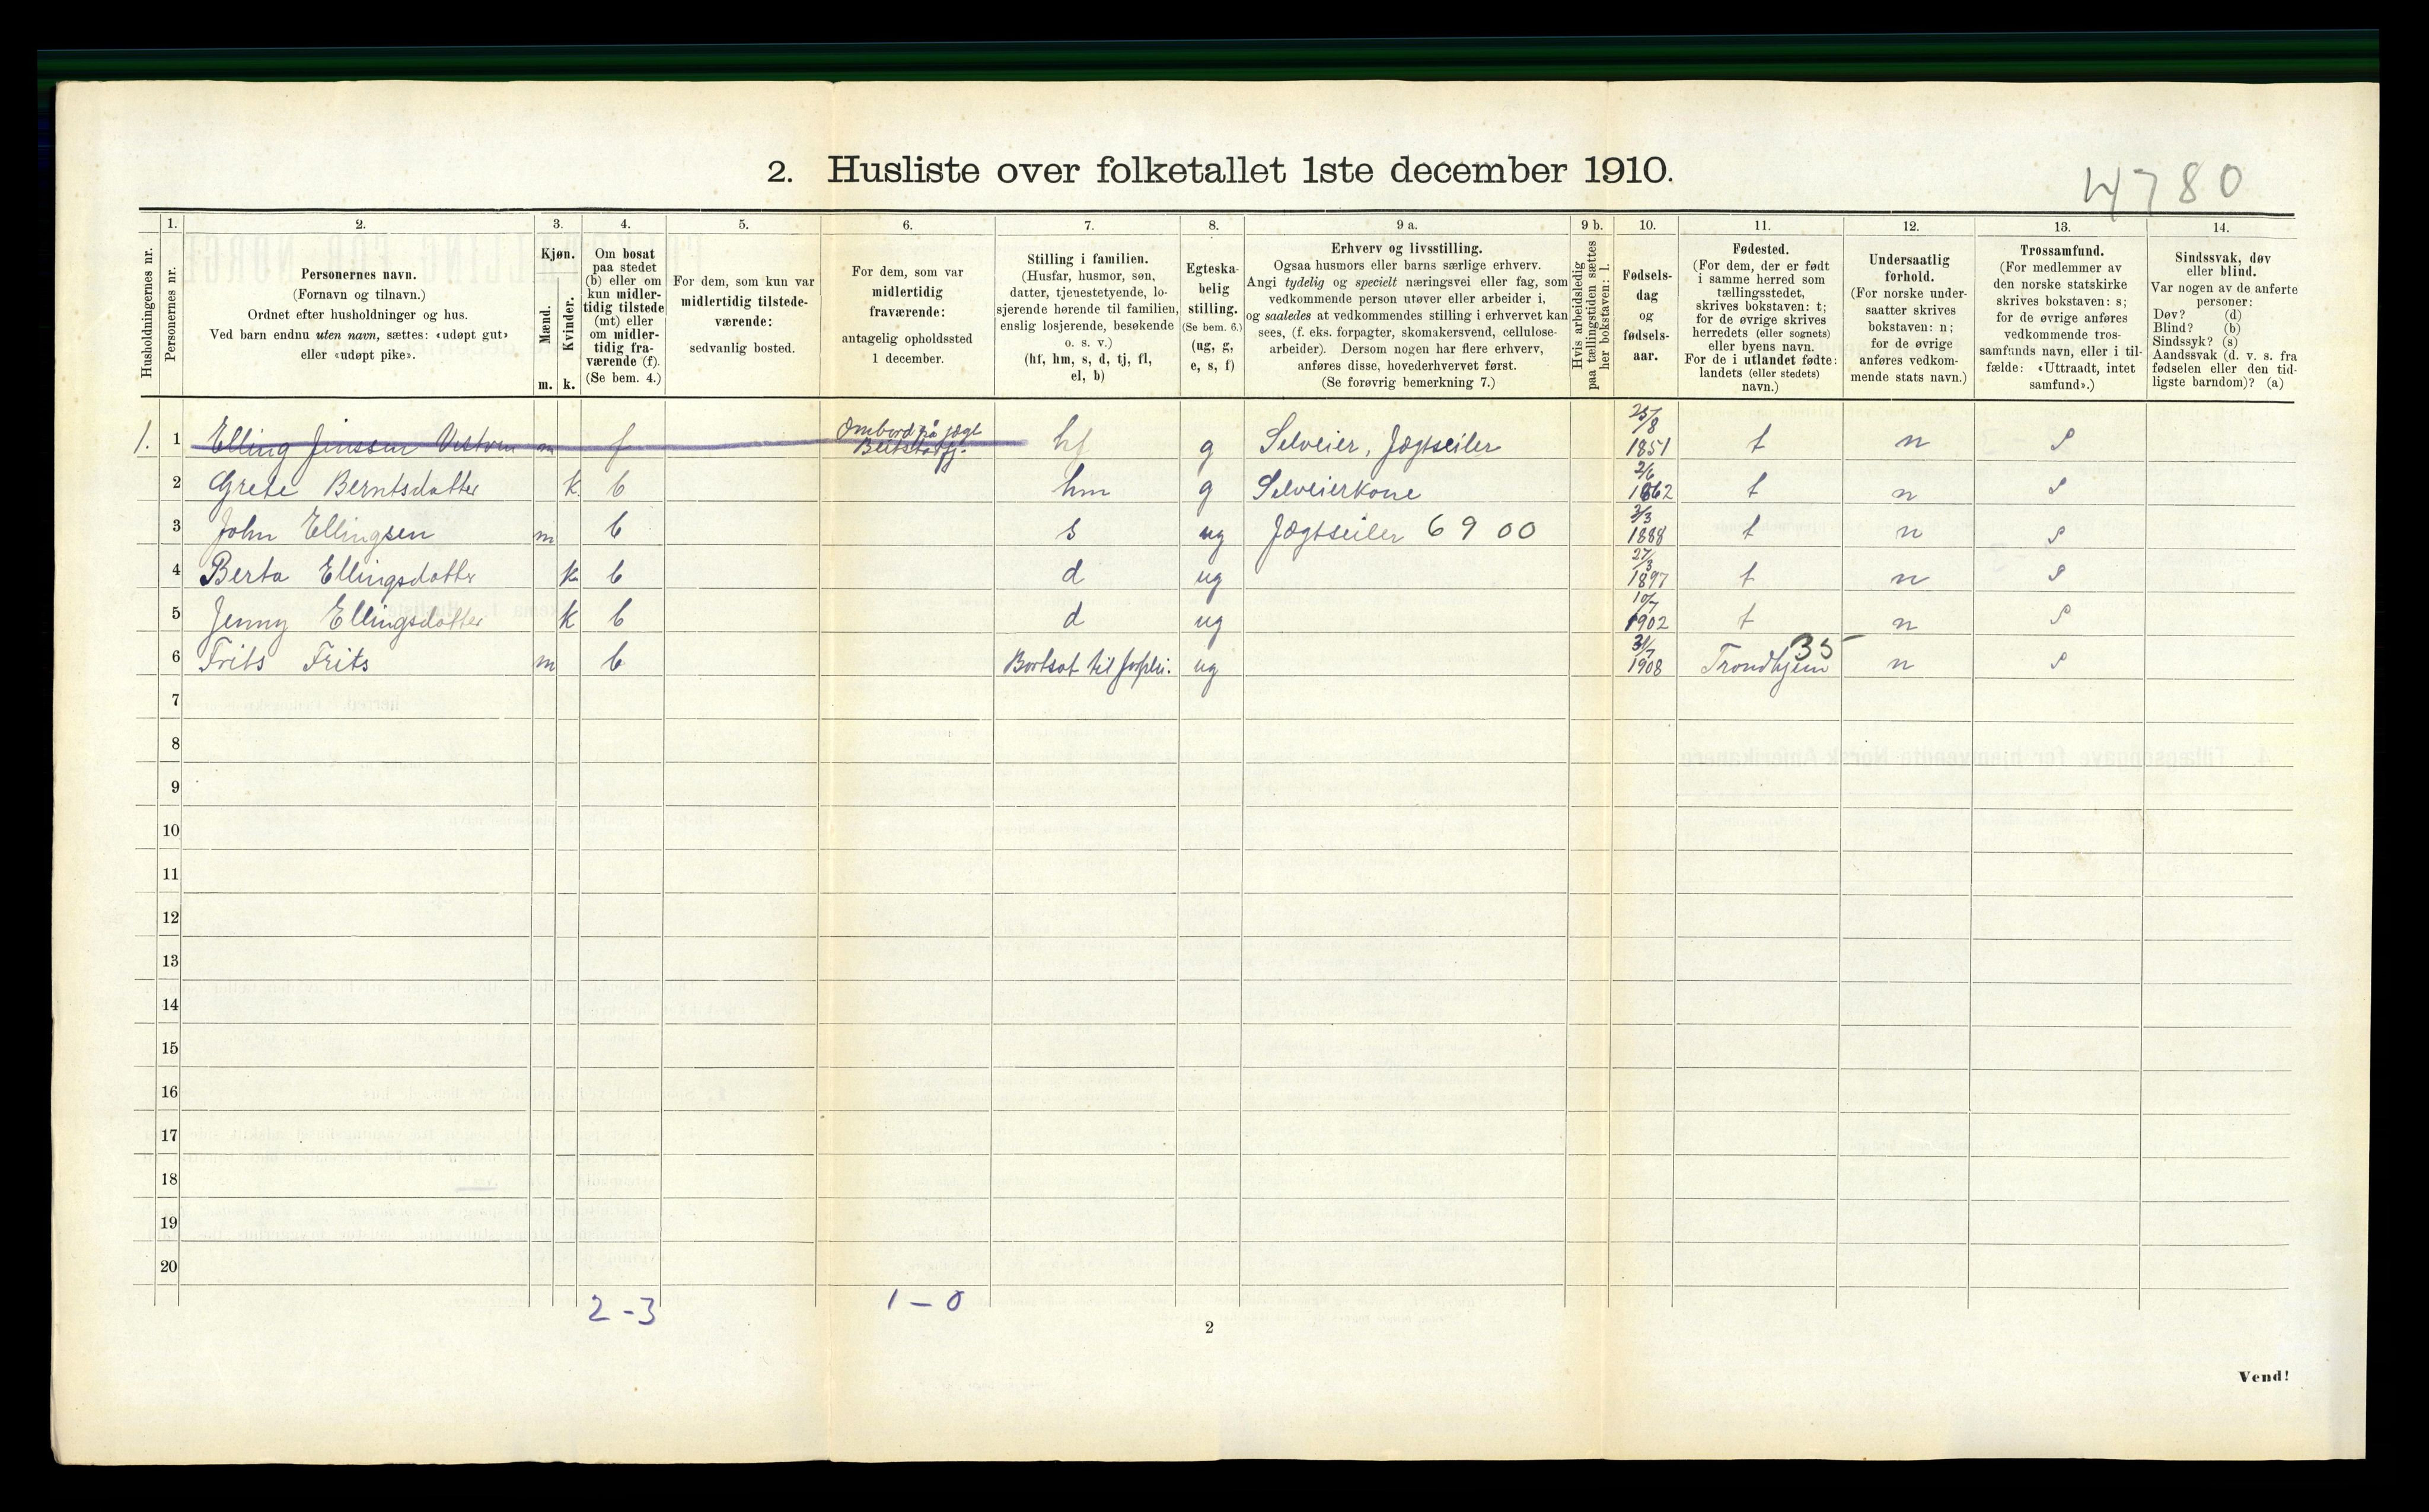 2. Husliste over folketallet 1ste december 1910.
4780
Husholdningernes nr.
1.
Personernes nr.
2.
Personernes navn.
(Fornavn og tilnavn.)
Ordnet efter husholdninger og hus.
Ved barn endnu uten navn, sættes: «udøpt gut»
eller «udøpt pike».
3.
Kjøn.
Mænd.
Kvinder.
m. k.
4.
Om bosat
paa stedet
(b) eller om
kun midler-
tidig tilstede
(mt) eller
om midler-
tidig fra-
værende (f).
(Se bem. 4.)
5.
For dem, som kun var
midlertidig tilstede-
værende:
sedvanlig bosted.
6.
For dem, som var
midlertidig
fraværende:
antagelig opholdssted
1 december.
7.
Stilling i familien.
(Husfar, husmor, søn,
datter, tjenestetyende, lo-
sjerende hørende til familien,
enslig losjerende, besøkende
o. s. v.)
(hf, hm, s, d, tj, fl,
el, b)
8.
Egteska-
belig
stilling.
(Se bem. 6.)
(ug, g,
e, s, f)
9 a.
Erhverv og livsstilling.
Ogsaa husmors eller barns særlige erhverv.
Angi tydelig og specielt næringsvei eller fag, som
vedkommende person utøver eller arbeider i,
og saaledes at vedkommendes stilling i erhvervet kan
sees, (f. eks. forpagter, skomakersvend, cellulose-
arbeider). Dersom nogen har flere erhverv,
anføres disse, hovederhvervet først.
(Se forøvrig bemerkning 7.)
9 b.
Hvis arbeidsledig
paa tællingstiden sættes
her bokstaven: l.
10.
Fødsels-
dag
og
fødsels-
aar.
11.
Fødested.
(For dem, der er født
i samme herred som
tællingsstedet,
skrives bokstaven: t;
for de øvrige skrives
herredets (eller sognets)
eller byens navn.
For de i utlandet fødte:
landets (eller stedets)
navn.)
12.
Undersaatlig
forhold.
(For norske under-
saatter skrives
bokstaven: n;
for de øvrige
anføres vedkom-
mende stats navn.)
13.
Trossamfund.
(For medlemmer av
den norske statskirke
skrives bokstaven: s;
for de øvrige anføres
vedkommende tros-
samfunds navn, eller i til-
fælde: «Uttraadt, intet
samfund».)
14.
Sindssvak, døv
eller blind.
Var nogen av de anførte
personer:
Døv? (d)
Blind? (b)
Sindssyk? (s)
Aandssvak (d. v. s. fra
fødselen eller den tid-
ligste barndom)? (a)
1. 1 Elling Jenssen m f Ombord på jægt hf g Selveier, Jægtseiler 25/8 1851 t n s
2 Grete Berntsdatter k b hm g Selveierkone 2/6 1862 t n s
3 John Ellingsen m b s ug Jægtseiler 6900 2/3 1888 t n s
4 Berta Ellingsdatter k b d ug 27/3 1897 t n s
5 Jenny Ellingsdatter k b d ug 10/7 1902 t n s
6 Frits Frits m b Bortsat til ug 31/7 1908 Trondhjem 35 n s
7
8
9
10
11
12
13
14
15
16
17
18
19
20
2-3
1-0
2
Vend!